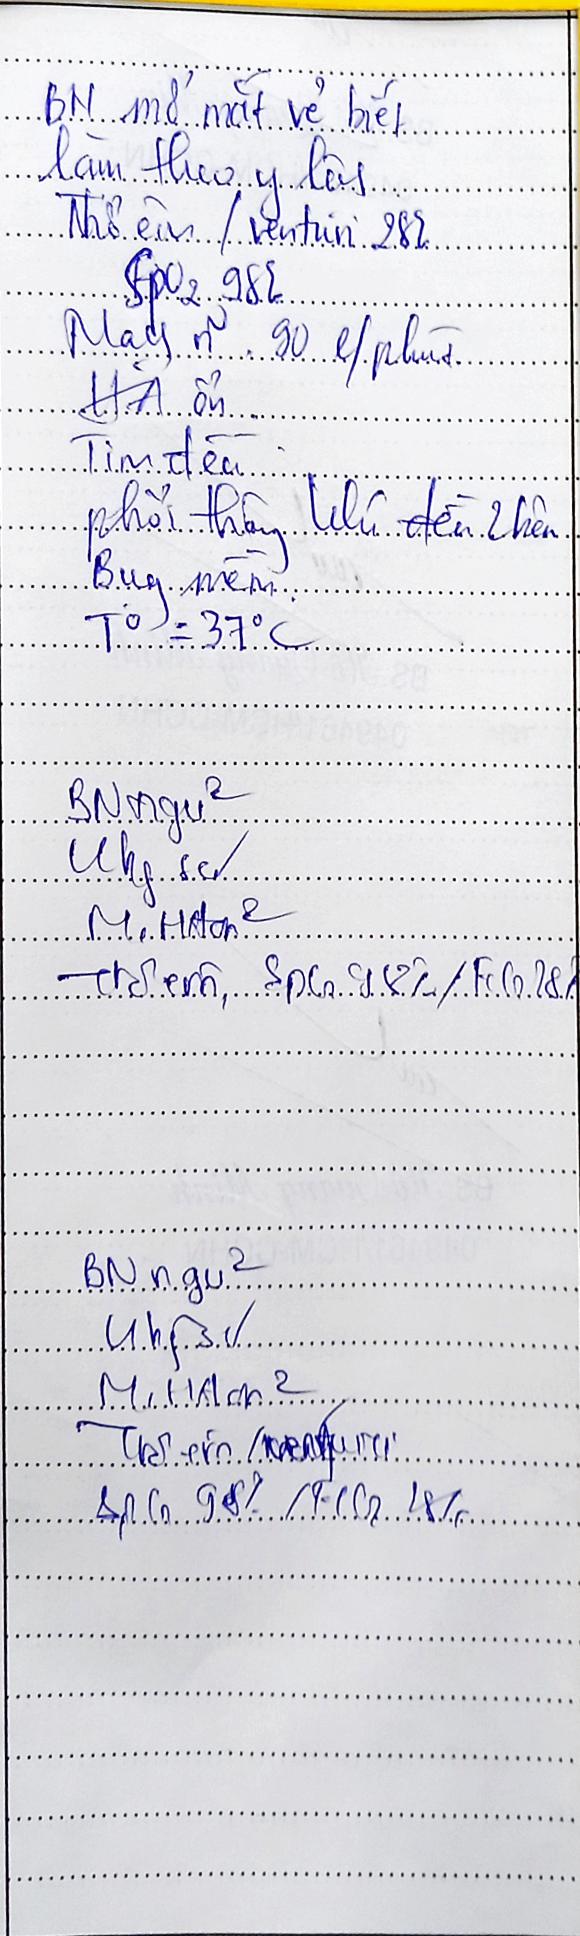 BN mở mắt vẻ biết
làm theo y lệnh
Thở êm / venturi 28%
SpO2 98%
Mạch rõ. 90 l/phút
HA ổn
Tim đều
phổi thông khí đều 2 bên
Bụng mềm.
T° = 37°C
BN ngủ
M, HA ổn
Thở êm, SpO2 98% / FiO2 28%
BN ngủ
M, HA ổn
Thở êm / venturi
SpO2 98% / FiO2 28%